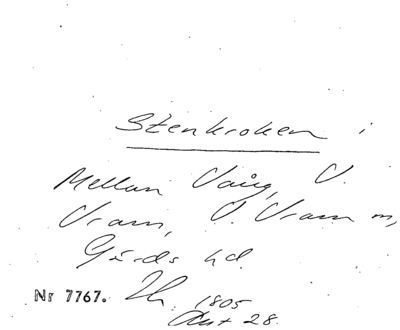 Stenkroken i
Mellan Vång, V.
Vram, V. Vram sn,
Gärds hd.
Nr 7767. 1805
28.